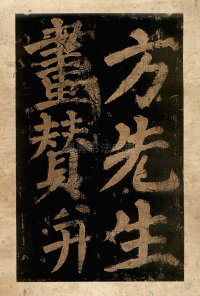 方先生
畫赞并